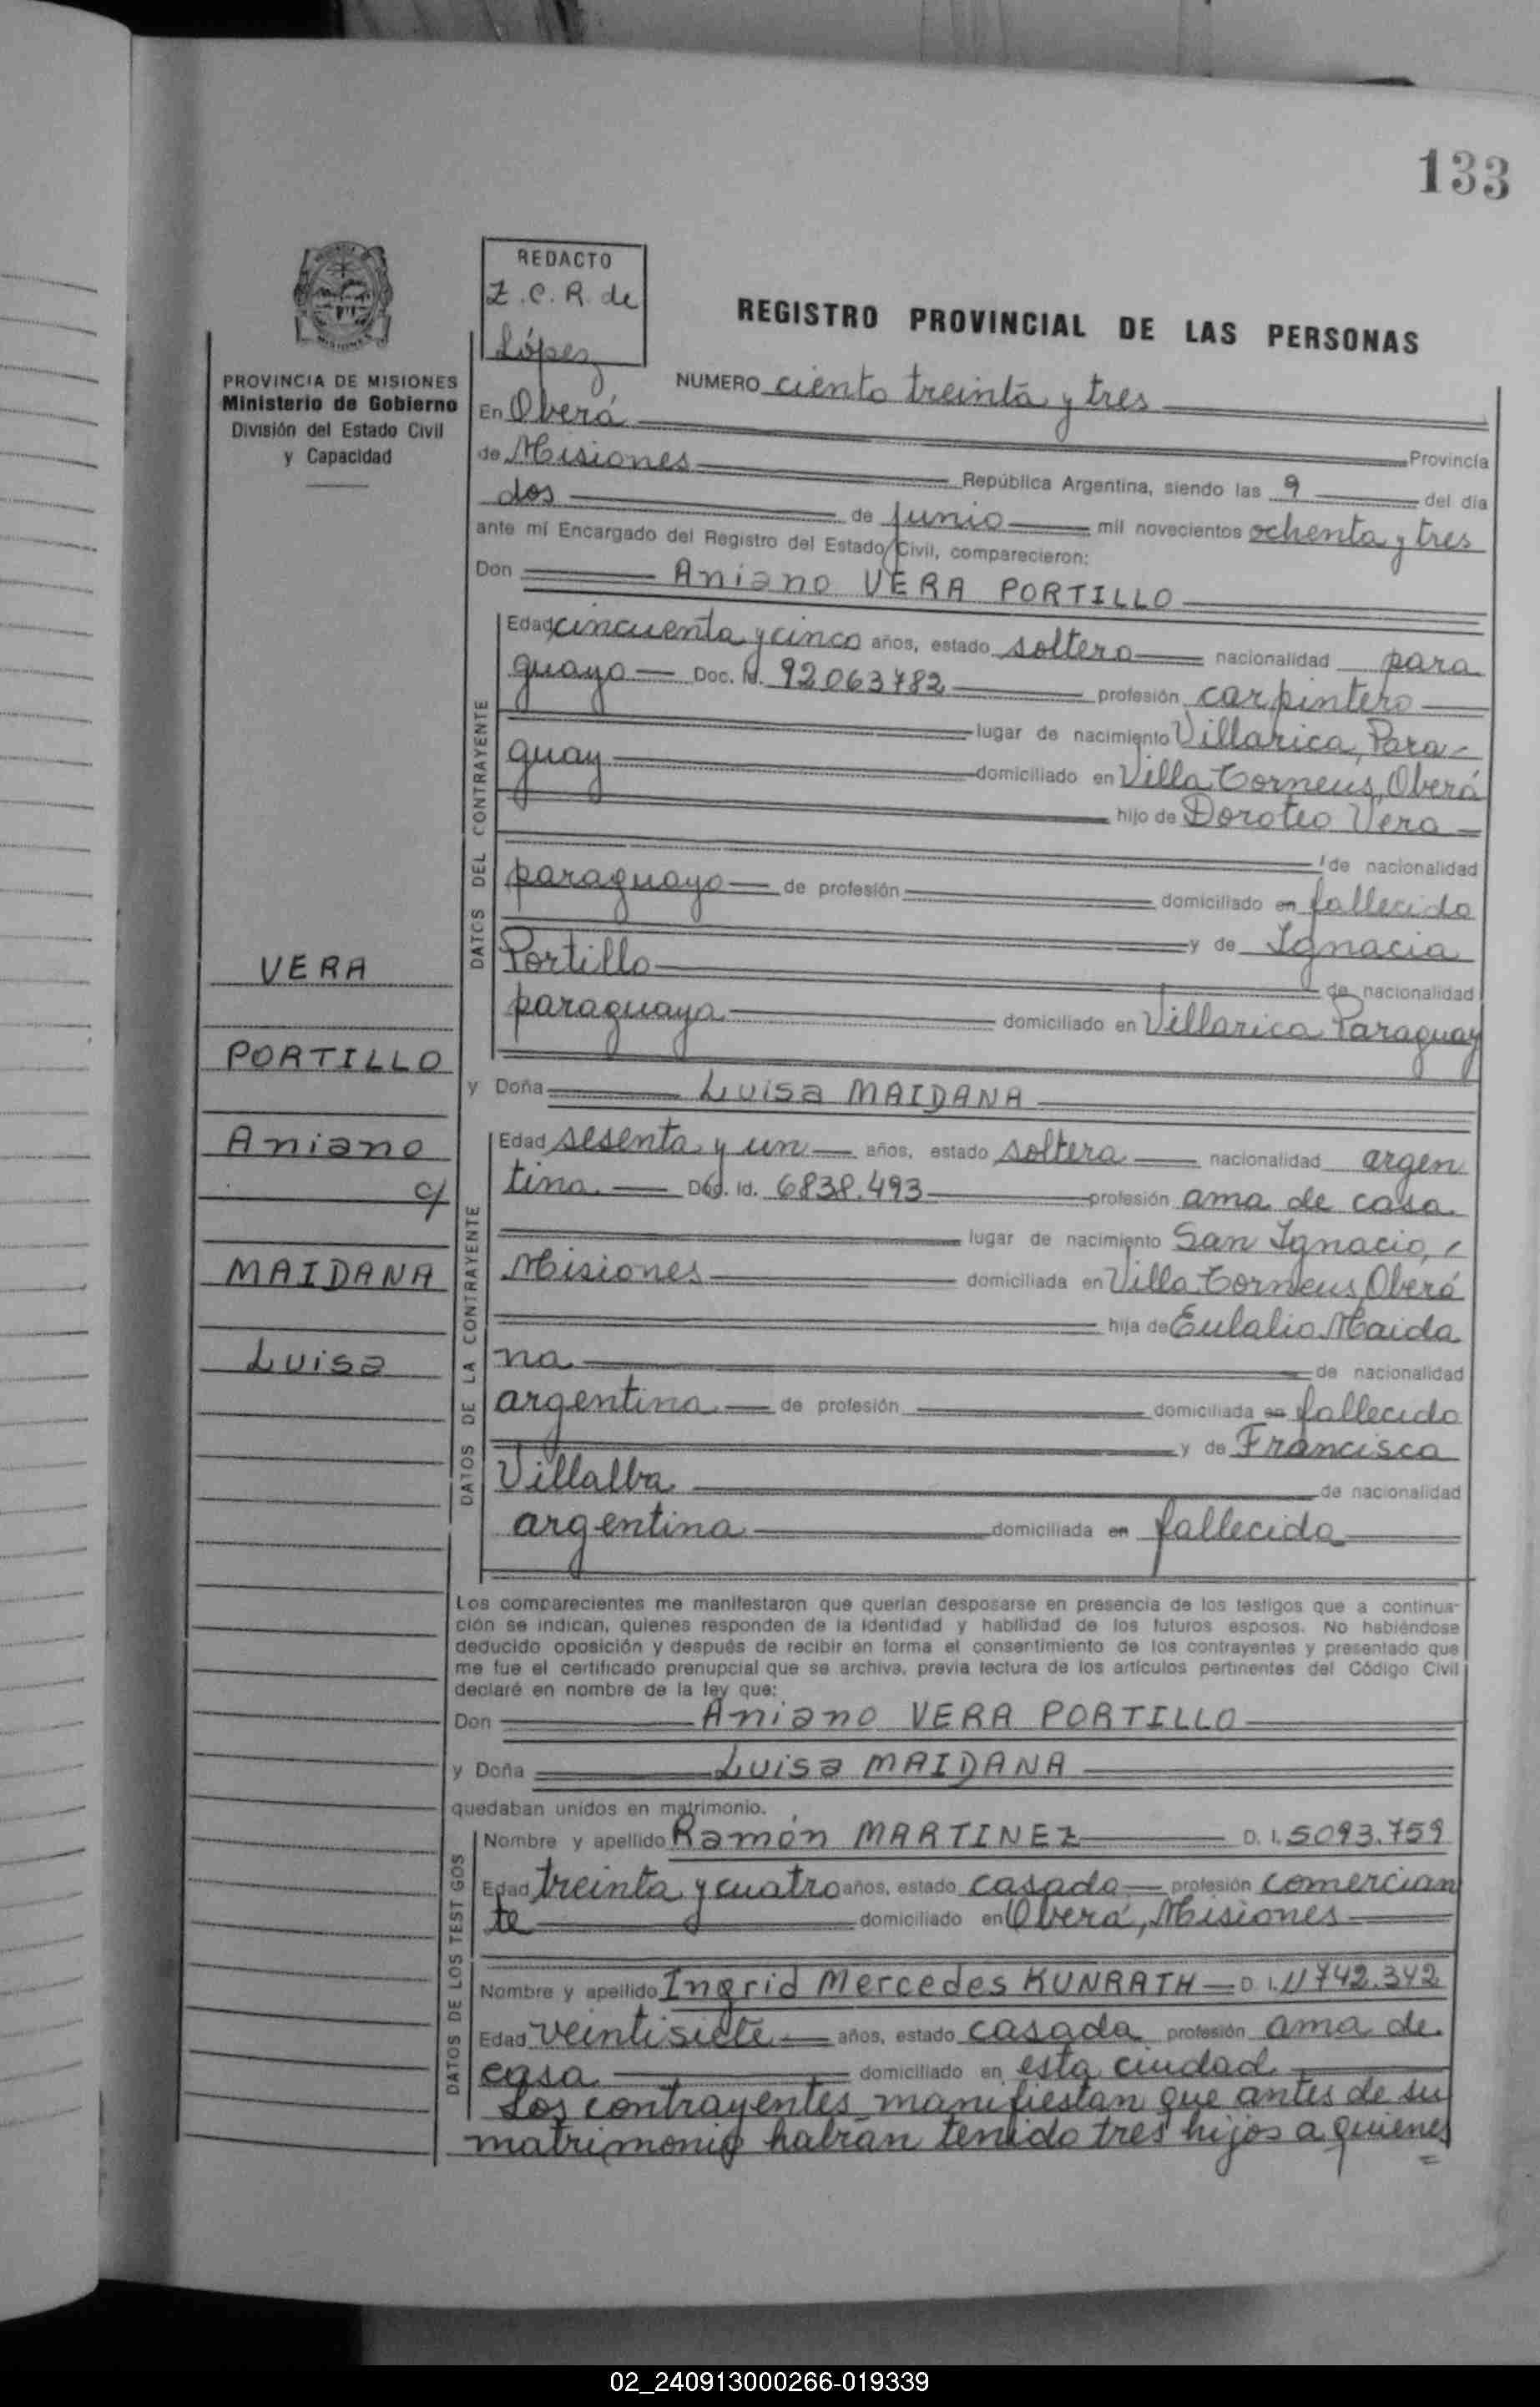 133
REDACTO
Z.C.R. de
López
REGISTRO PROVINCIAL DE LAS PERSONAS
PROVINCIA DE MISIONES
Ministerio de Gobierno
División del Estado Civil
y Capacidad
NUMERO ciento treinta y tres
En Oberá
Provincia
de Misiones República Argentina, siendo las 9 del día
dos de junio mil novecientos ochenta y tres
ante mí Encargado del Registro del Estado Civil, comparecieron:
Don Aniano VERA PORTILLO
DATOS DEL CONTRAYENTE
Edad cincuenta y cinco años, estado soltero nacionalidad para
guayo Doc. Id. 92063782 profesión carpintero
lugar de nacimiento Villarica, Para-
guay domiciliado en Villa Torneus, Oberá
hijo de Doroteo Vera
de nacionalidad
paraguayo de profesión domiciliado en fallecido
y de Ignacia
Portillo
de nacionalidad
paraguaya domiciliado en Villarica Paraguay
VERA
PORTILLO
Aniano
c/
MAIDANA
Luisa
y Doña Luisa MAIDANA
DATOS DE LA CONTRAYENTE
Edad sesenta y un años, estado soltera nacionalidad argen
tina. Doc. Id. 6838.493 profesión ama de casa.
lugar de nacimiento San Ignacio,
Misiones domiciliada en Villa Torneus, Oberá
hija de Eulalio Maida
na de nacionalidad
argentina de profesión domiciliada en fallecido
y de Francisca
Villalba de nacionalidad
argentina domiciliada en fallecida
Los comparecientes me manifestaron que querían desposarse en presencia de los testigos que a continua-
ción se indican, quienes responden de la identidad y habilidad de los futuros esposos. No habiéndose
deducido oposición y después de recibir en forma el consentimiento de los contrayentes y presentado que
me fue el certificado prenupcial que se archiva, previa lectura de los artículos pertinentes del Código Civil
declaré en nombre de la ley que:
Don Aniano VERA PORTILLO
y Doña Luisa MAIDANA
quedaban unidos en matrimonio.
DATOS DE LOS TESTIGOS
Nombre y apellido Ramón MARTINEZ D. I. 5093.759
Edad treinta y cuatro años, estado casado profesión comercian
te domiciliado en Oberá, Misiones
Nombre y apellido Ingrid Mercedes KUNRATH D. I. 11742.342
Edad veintisiete años, estado casada profesión ama de
casa domiciliado en esta ciudad.
Los contrayentes manifiestan que antes de su
matrimonio habían tenido tres hijos a quienes
02_240913000266-019339